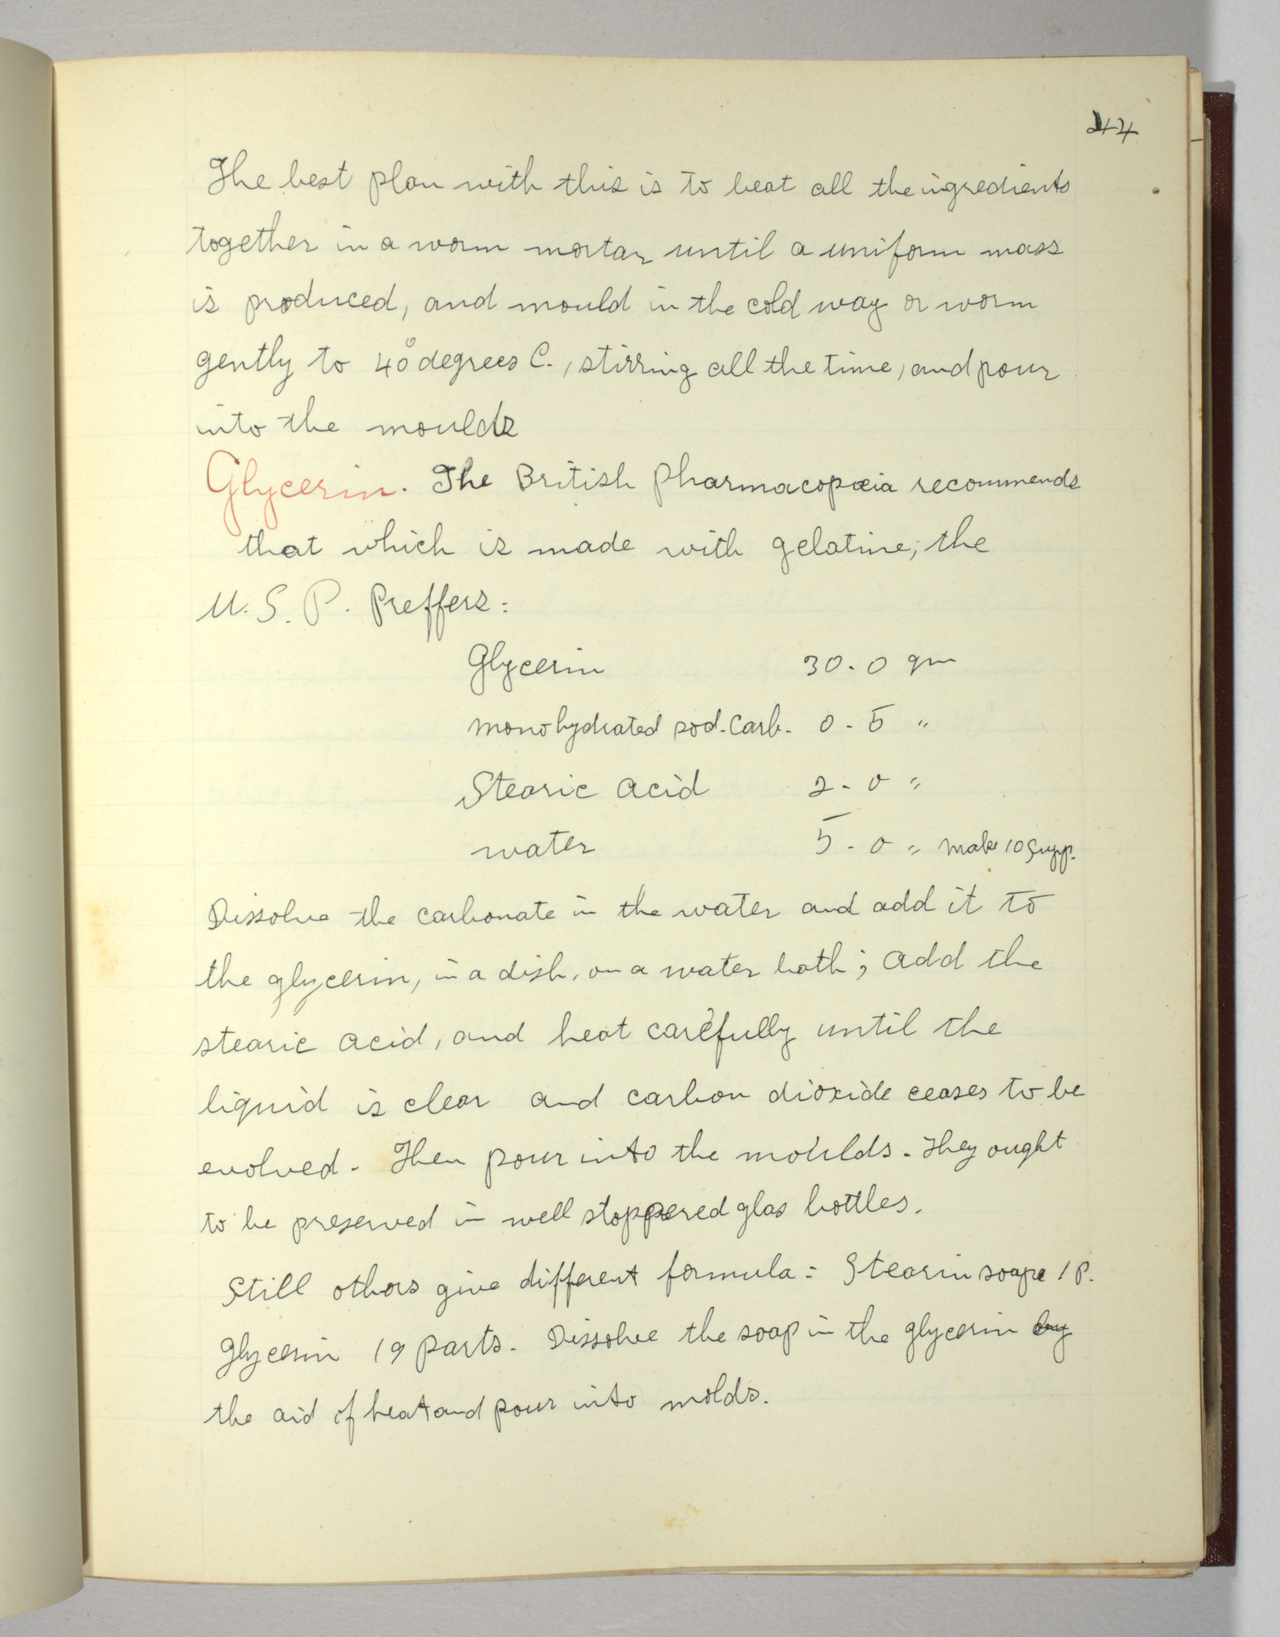 244
The best plan with this is to beat all the ingredients
together in a warm mortar until a uniform mass
is produced, and mould in the cold way or warm
gently to 40° degrees C., stirring all the time, and pour
into the moulds
Glycerin. The British Pharmacopœia recommends
that which is made with gelatine; the
U.S.P. Preffers:
Glycerin 30.0 gm
monohydrated sod. Carb. 0.5 "
Stearic Acid 2.0 "
water 5.0 " make 10 Supp.
Dissolve the carbonate in the water and add it to
the glycerin, in a dish, on a water bath; add the
stearic acid, and heat carefully until the
liquid is clear and carbon dioxide ceases to be
evolved. Then pour into the moulds. They ought
to be preserved in well stoppered glas bottles.
Still others give different formula: Stearin soap 1 P.
Glycerin 19 parts. Dissolve the soap in the glycerin by
the aid of heat and pour into molds.